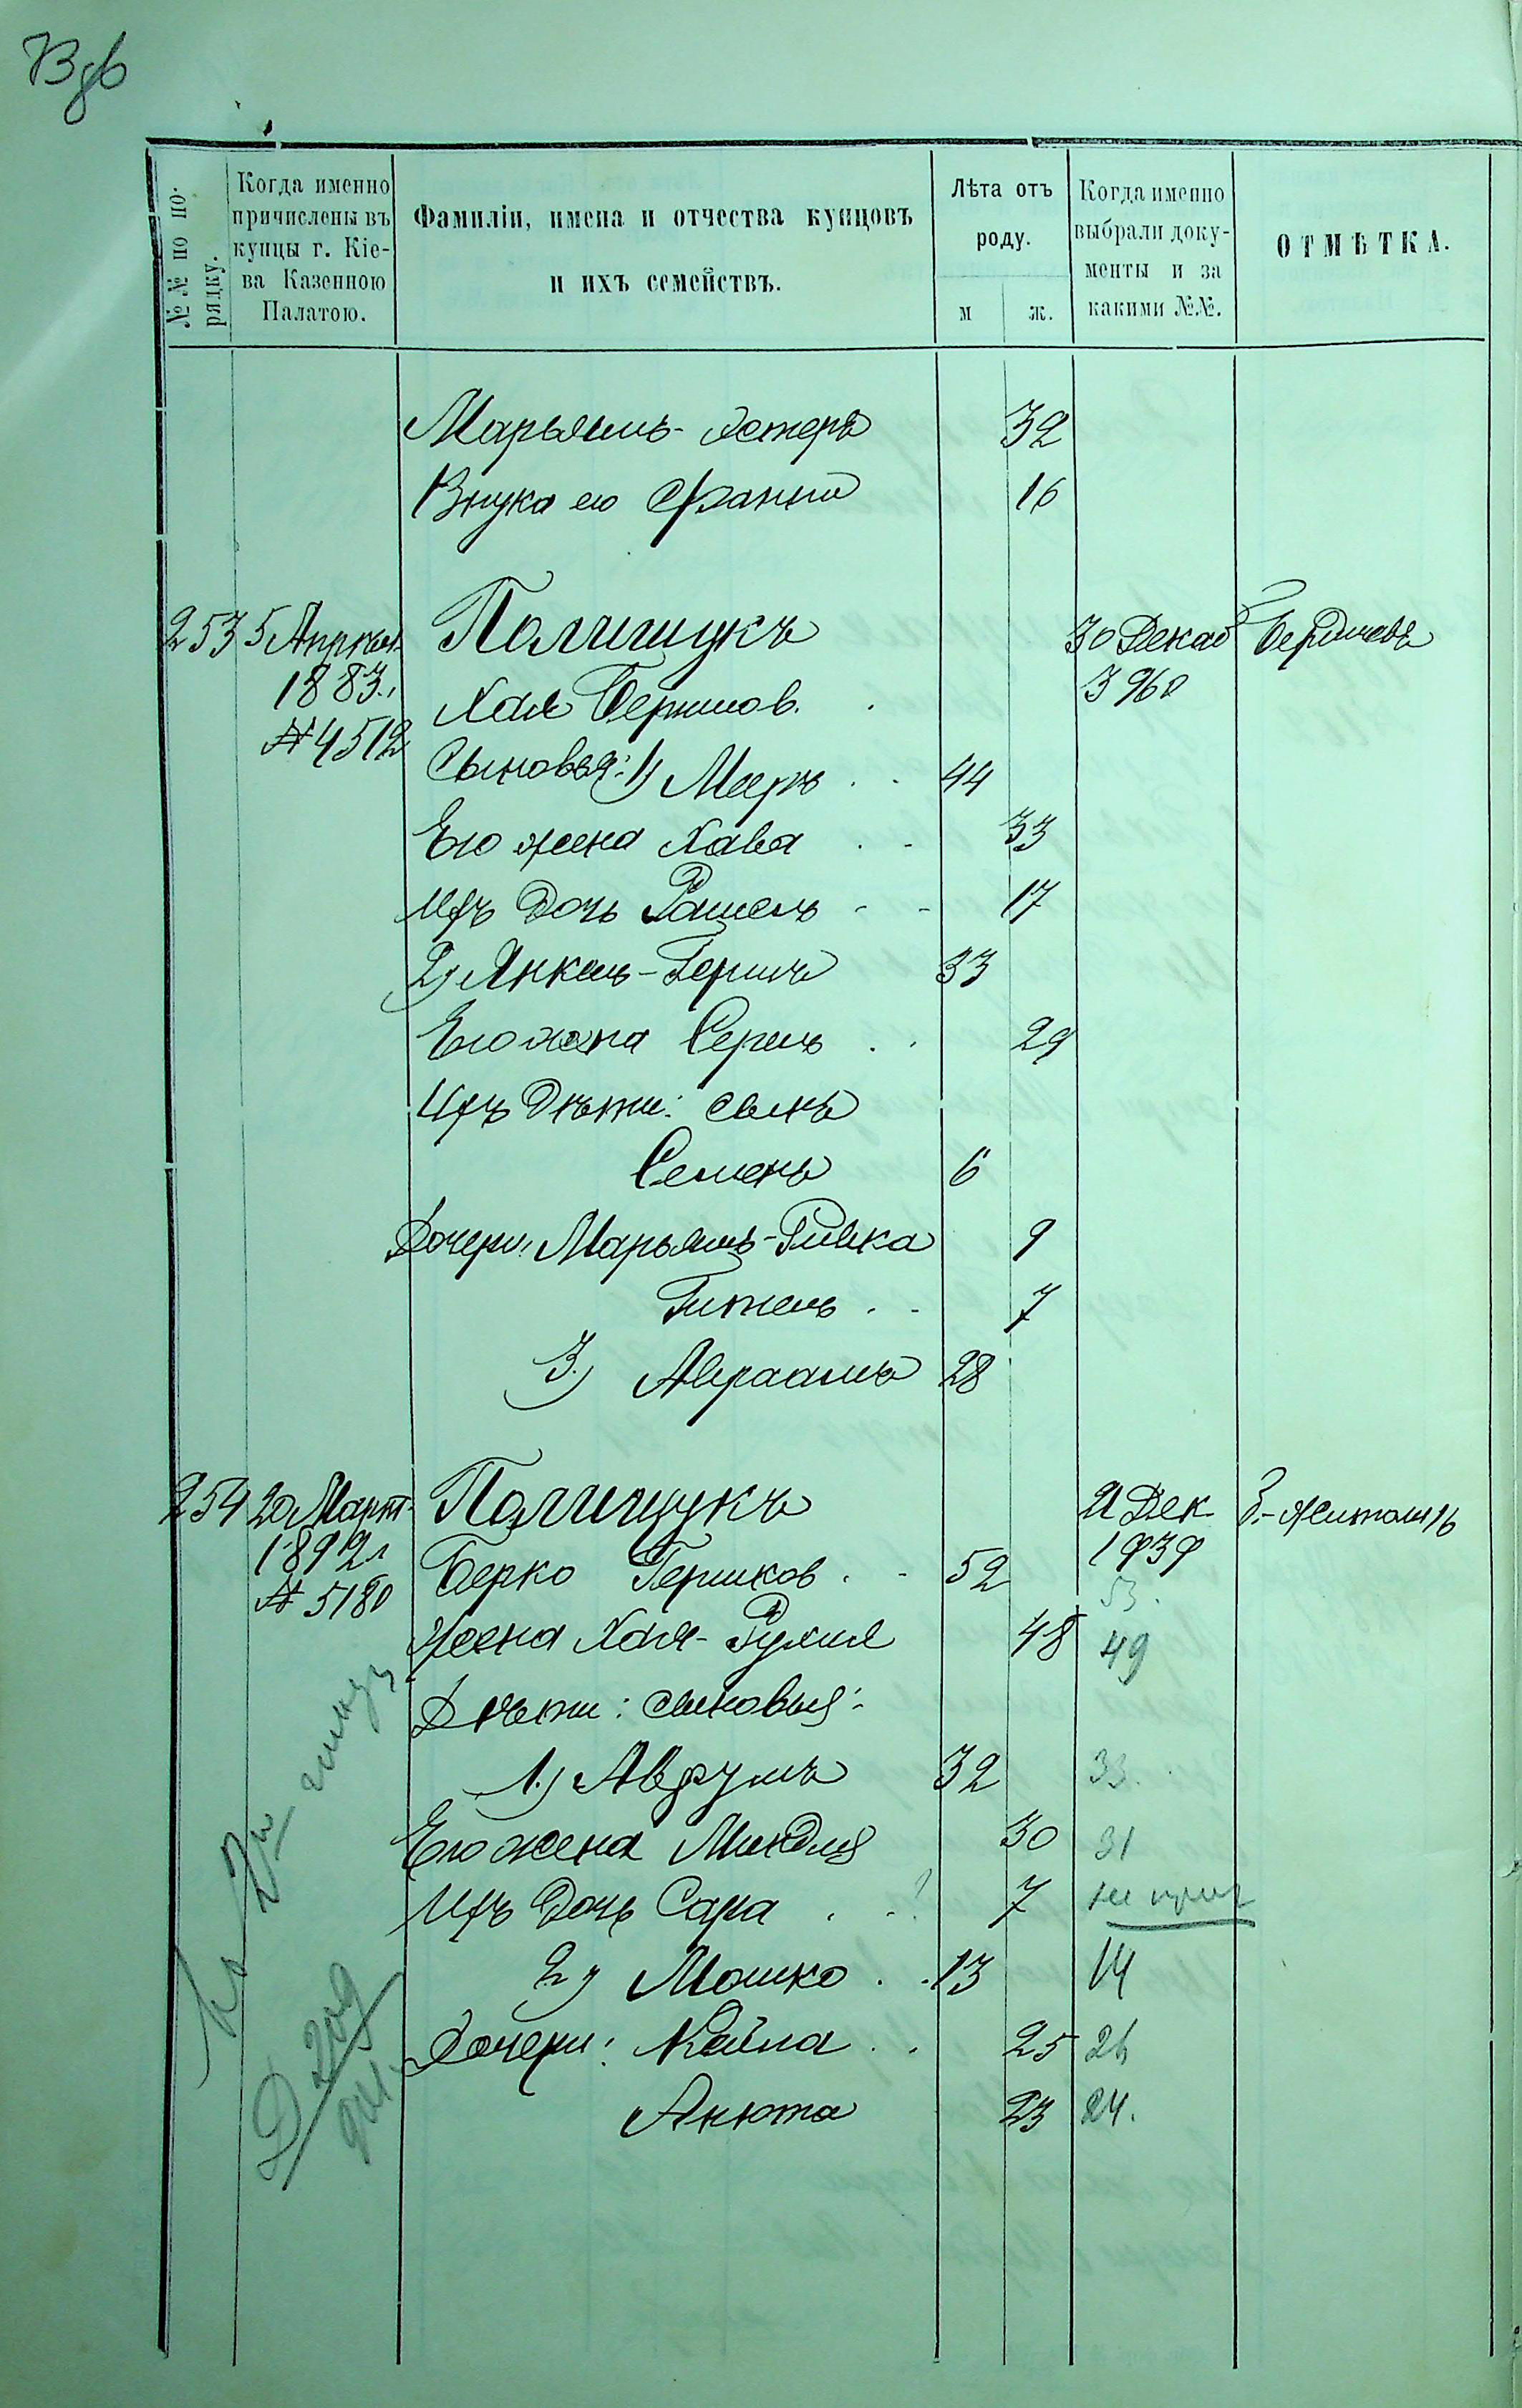 №№ по по-
рядку.
Когда именно
причислены въ
купцы г. Кіе-
ва Казенною
Палатою.
Фамиліи, имена и отчества купцовъ
и ихъ семействъ.
Лѣта отъ
роду.
м ж.
Когда именно
выбрали доку-
менты и за
какими №№.
ОТМѢТКА.
Марьямъ-Эстеръ 32
Внука его Фанни 16
253 5 Апрѣл. Полищукъ 30 Декаб Бердичевъ
1883. Хая Бершов. 3960
№ 4512
Сыновья: 1) Мееръ 44
Его жена Хава 33
Ихъ дочь Рашель 17
2) Янкель-Гершъ 33
Его жена Серель 29
Ихъ дѣти: сынъ
Семенъ 6
Дочери: Марьямъ-Ривка 9
Гитель 7
3) Авраамъ 28
254 20 Март. Полищукъ 21 Дек. Житомиръ
1892 Берко Гершков. 52 1939
№ 5180 53.
Жена Хая-Рухля 48 49
Дѣти: сыновья:
1) Аврумъ 32 33.
Его жена Миндля 30 31
Ихъ дочь Сара ? 7 не прич
2) Мошко 13 14
Дочери: Кейла 25 26
Анюта 23 24.